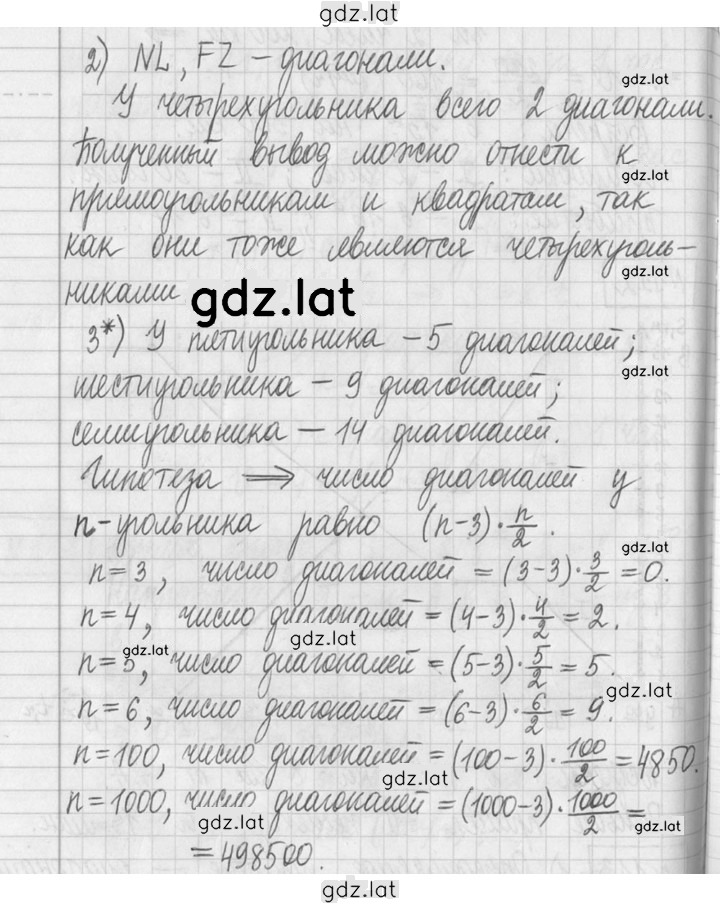 gdz.lat
2) NL, FZ – диагонали.
gdz.lat
У четырехугольника всего 2 диагонали.
gdz.lat
Полученный вывод можно отнести к
gdz.lat
прямоугольникам и квадратам, так
как они тоже являются четырехуголь-
gdz.lat
никами
gdz.lat
3*) У пятиугольника – 5 диагоналей;
gdz.lat
шестиугольника – 9 диагоналей;
семиугольника – 14 диагоналей.
Гипотеза ⟹ число диагоналей у
n-угольника равно (n-3)·n/2.
gdz.lat
n=3, число диагоналей = (3-3)·3/2=0.
n=4, число диагоналей = (4-3)·4/2=2.
gdz.lat
gdz.lat
n=5, число диагоналей = (5-3)·5/2=5.
gdz.lat
n=6, число диагоналей = (6-3)·6/2=9.
n=100, число диагоналей = (100-3)·100/2=4850.
gdz.lat
n=1000, число диагоналей = (1000-3)·1000/2=
gdz.lat
gdz.lat
=498500.
gdz.lat